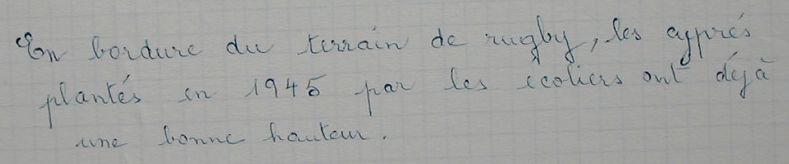 En bordure du terrain de rugby, les cyprés
plantés en 1945 par les écoliers ont déjà
une bonne hauteur.